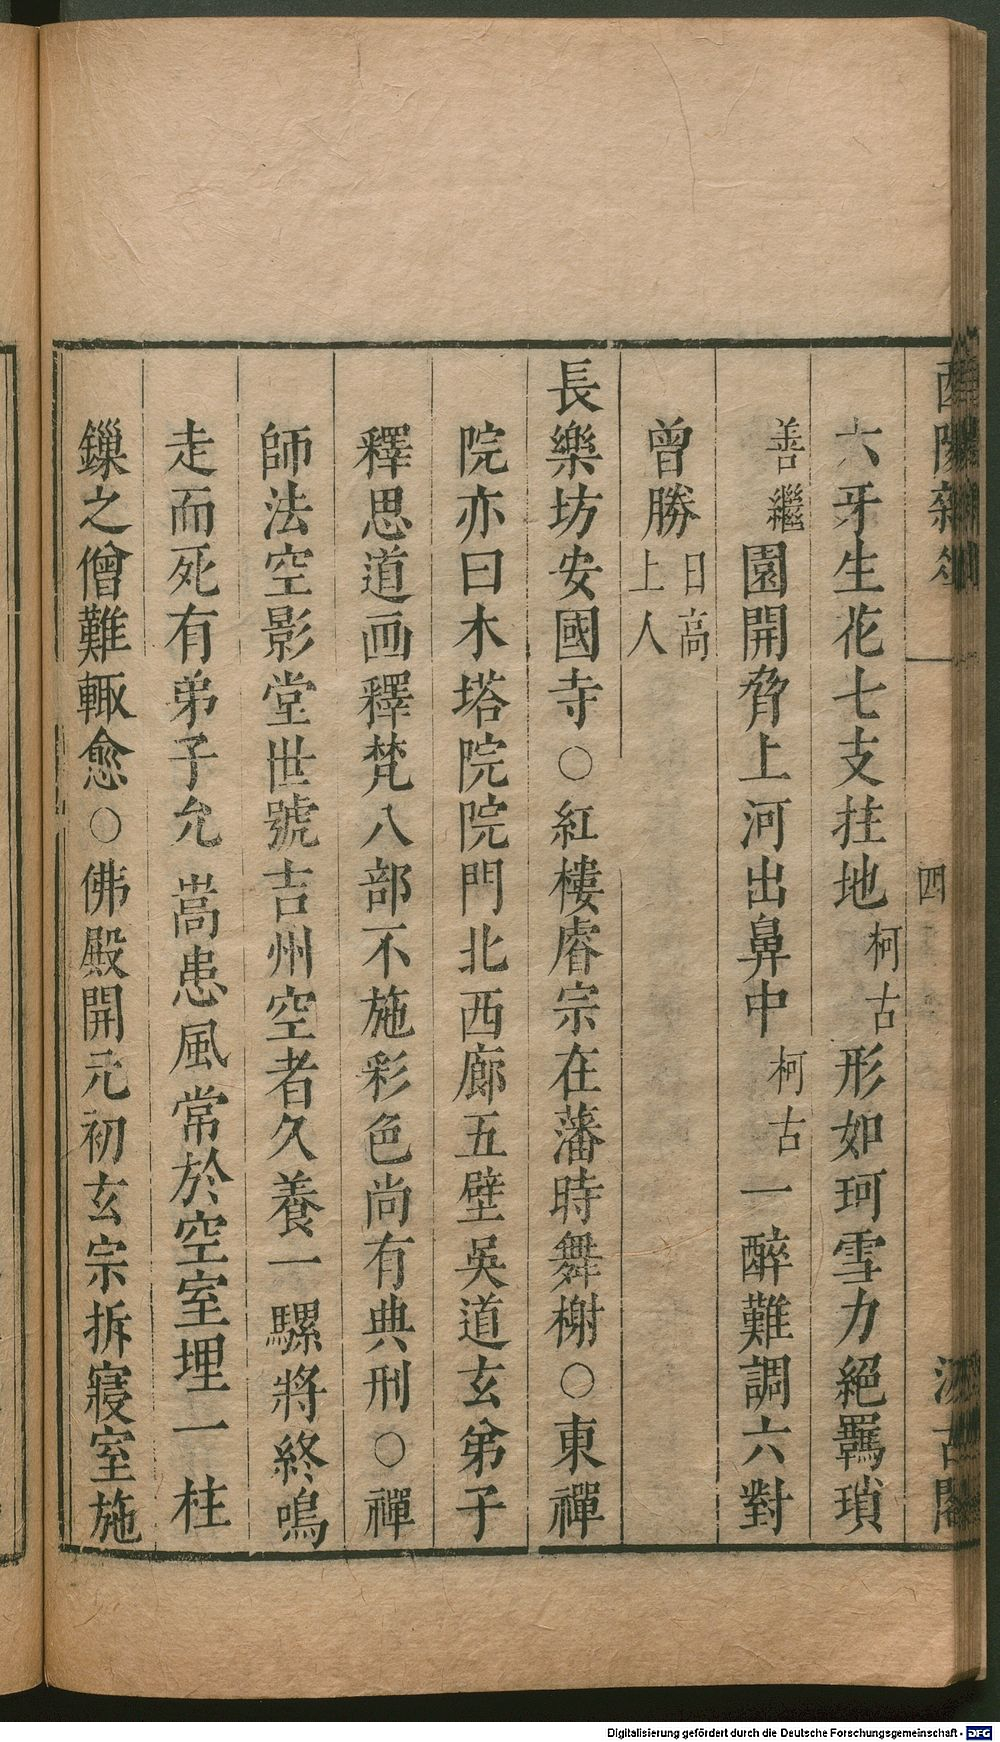 酉陽雜俎 四 汲古閣
六牙生花七支拄地柯古形如珂雪力絕羈瑣
善繼園開脅上河出鼻中柯古一醉難調六對
曾勝日高上人
長樂坊安國寺○紅樓睿宗在藩時舞榭○東禪
院亦曰木塔院院門北西廊五壁吳道玄弟子
釋思道画釋梵八部不施彩色尚有典刑○禪
師法空影堂世號吉州空者久養一騾將終鳴
走而死有弟子允嵩患風常於空室埋一柱
鏁之僧難輙愈○佛殿開元初玄宗拆寢室施
Digitalisierung gefördert durch die Deutsche Forschungsgemeinschaft - DFG